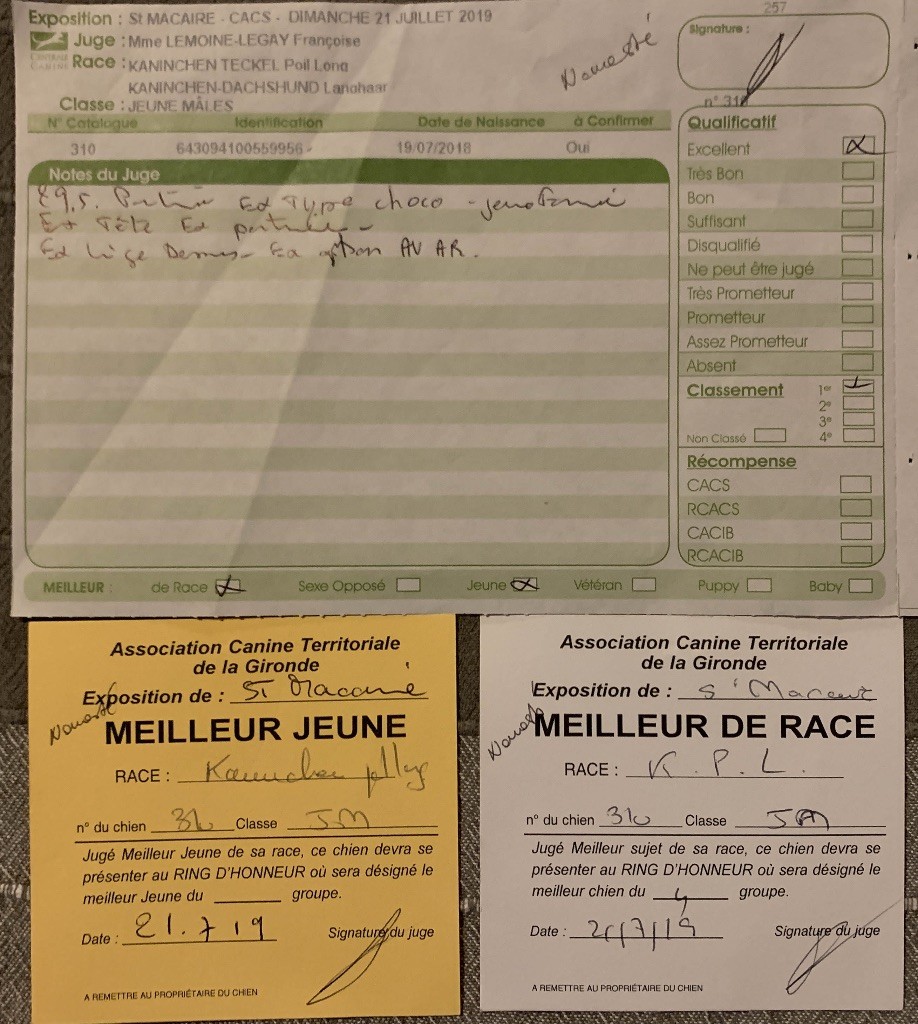 257
Exposition : St MACAIRE - CACS - DIMANCHE 21 JUILLET 2019
Juge : Mme LEMOINE-LEGAY Françoise
Race : KANINCHEN TECKEL Poil Long
KANINCHEN-DACHSHUND Langhaar
Classe : JEUNE MÂLES
Namasté
Signature :
n° 310
N° Catalogue Identification Date de Naissance à Confirmer
310 643094100559956 - 19/07/2018 Oui
Notes du Juge
29,5. Ext Type choco -
Ext Tête Ext
Ext Ext AV AR.
Qualificatif
Excellent X
Très Bon
Bon
Suffisant
Disqualifié
Ne peut être jugé
Très Prometteur
Prometteur
Assez Prometteur
Absent
Classement 1er
2e
3e
Non Classé 4e
Récompense
CACS
RCACS
CACIB
RCACIB
MEILLEUR : de Race X Sexe Opposé Jeune X Vétéran Puppy Baby
Association Canine Territoriale
de la Gironde
Exposition de : St Macaire
Namasté
MEILLEUR JEUNE
RACE : Kaninchen
n° du chien 310 Classe JM
Jugé Meilleur Jeune de sa race, ce chien devra se
présenter au RING D'HONNEUR où sera désigné le
meilleur Jeune du groupe.
Date : 21.7 19 Signature du juge
A REMETTRE AU PROPRIÉTAIRE DU CHIEN
Association Canine Territoriale
de la Gironde
Exposition de : St Macaire
Namasté
MEILLEUR DE RACE
RACE : K. P. L.
n° du chien 310 Classe JM
Jugé Meilleur sujet de sa race, ce chien devra se
présenter au RING D'HONNEUR où sera désigné le
meilleur chien du 4 groupe.
Date : 21/7/19 Signature du juge
A REMETTRE AU PROPRIÉTAIRE DU CHIEN